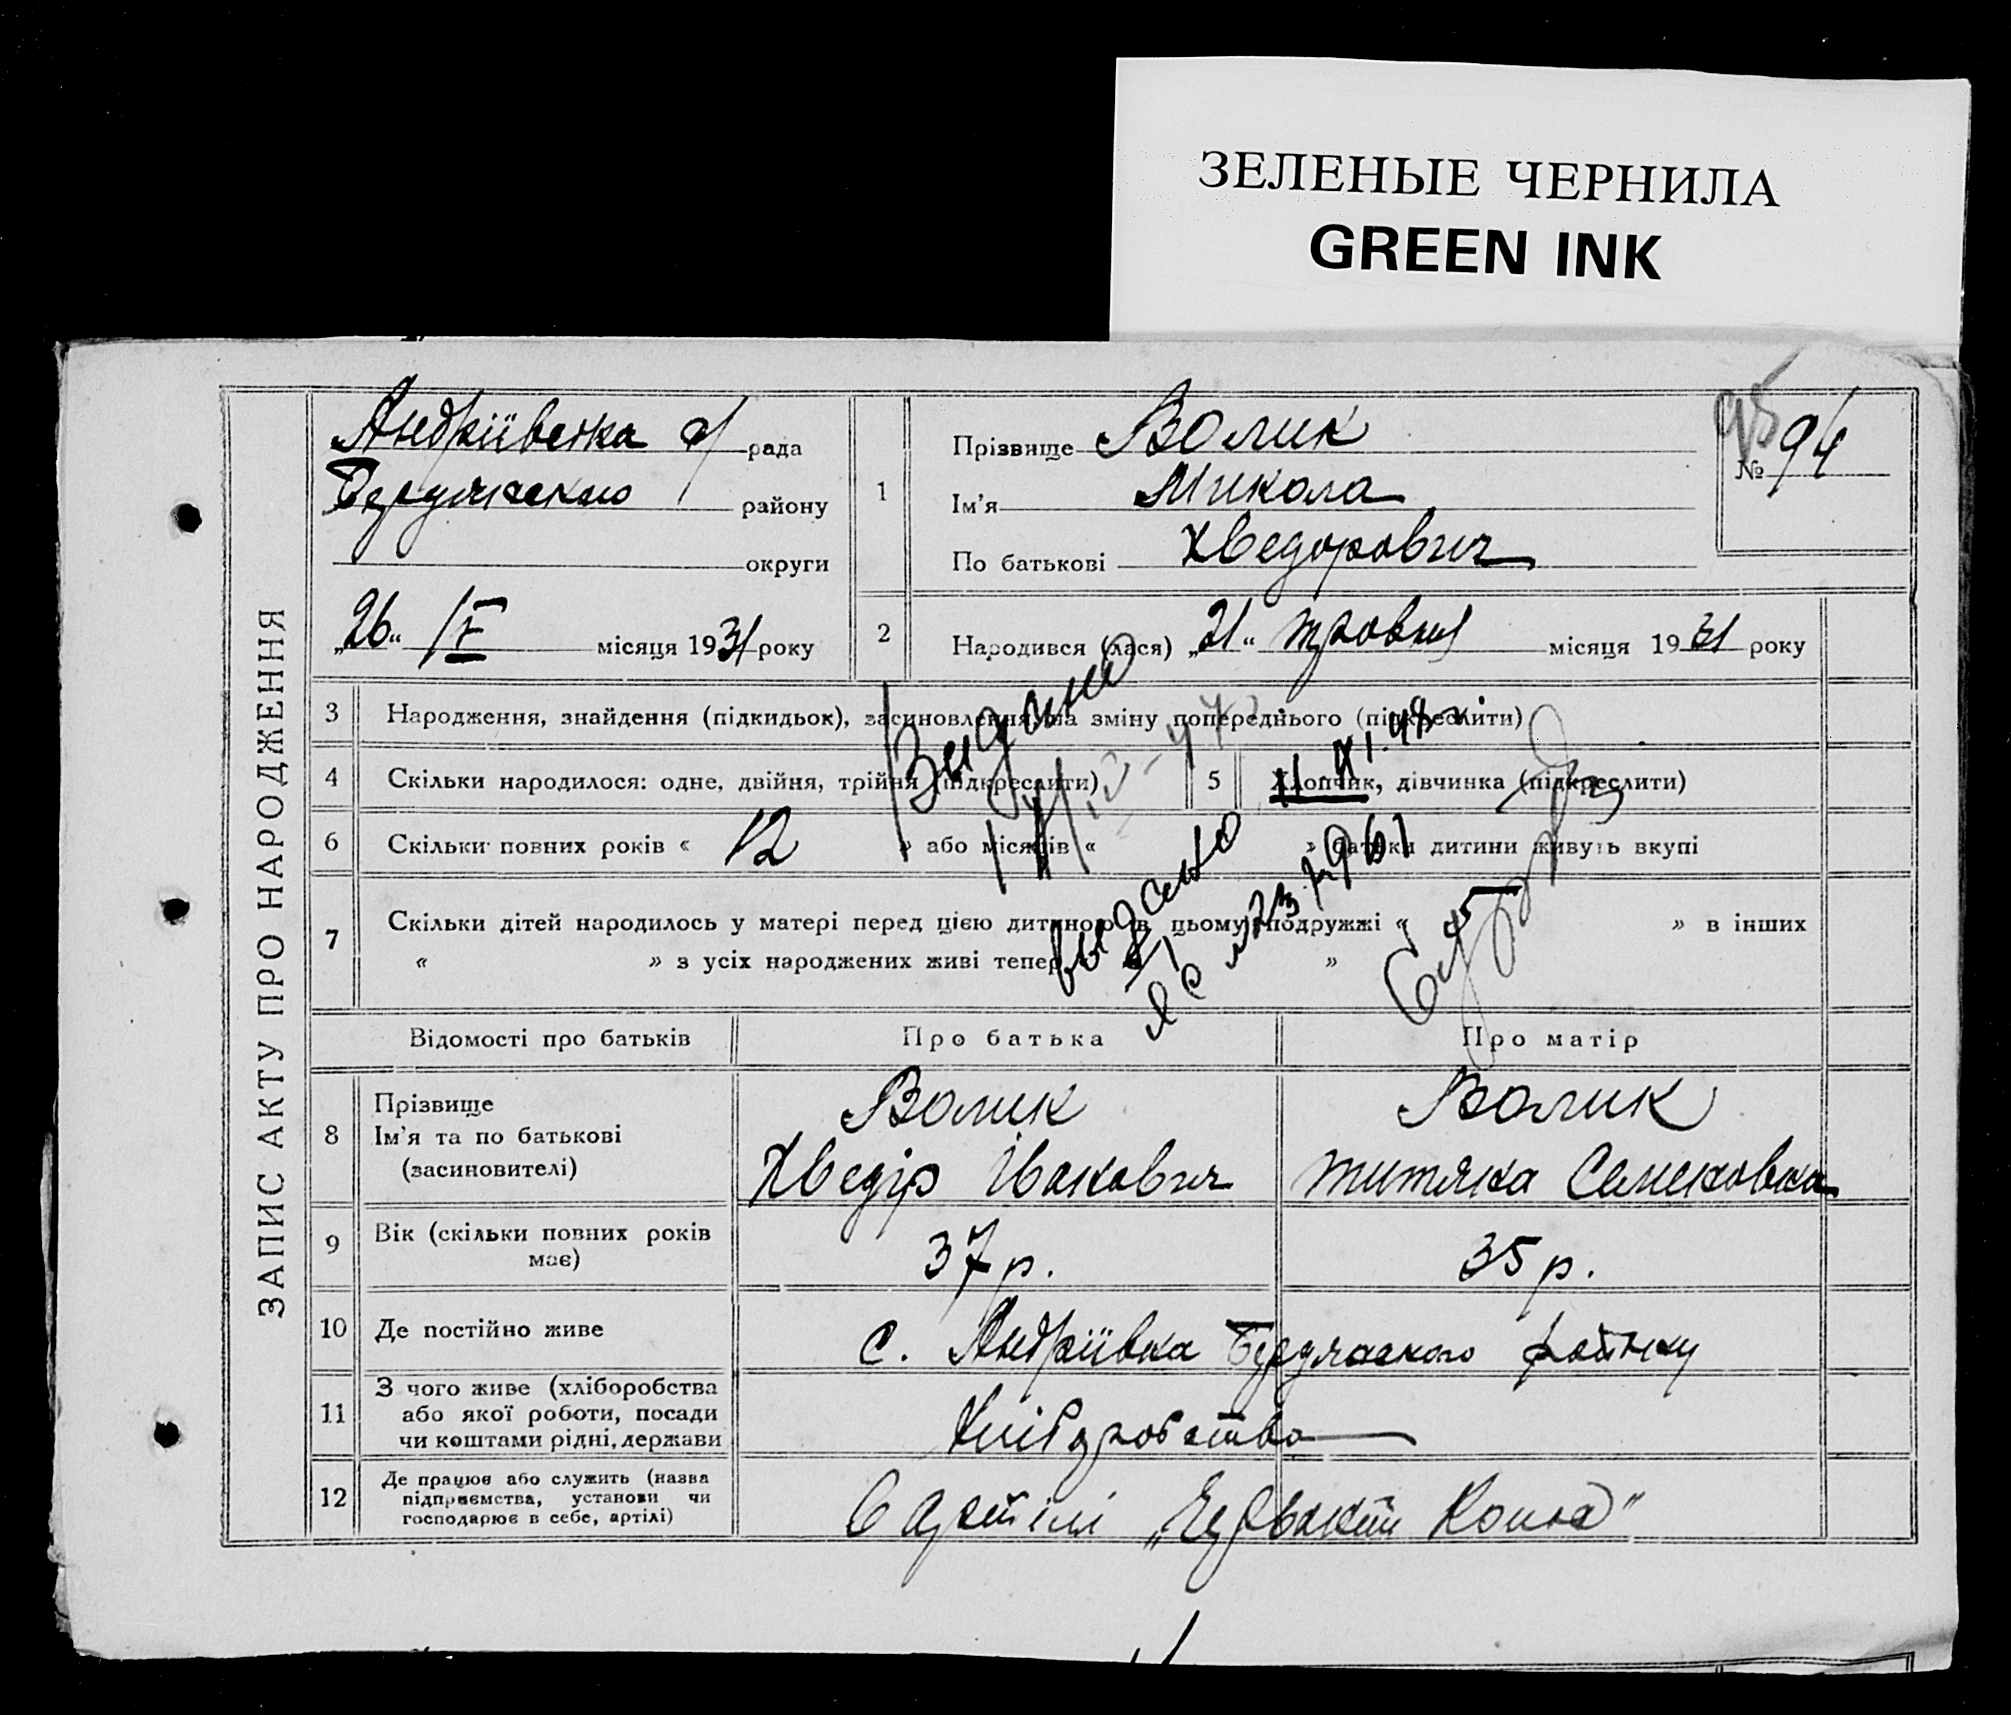 ЗЕЛЕНЫЕ ЧЕРНИЛА
GREEN INK
ЗАПИС АКТУ ПРО НАРОДЖЕННЯ
Андріївська с/рада
району
округи
„26“ V місяця 1931 року
95
№ 94
1
Прізвище Волик
Ім'я Микола
По батькові Хведорович
2 Народився (лася) „21“ травня місяця 1931 року
3 Народження, знайдення (підкидьок), засиновлення на зміну попереднього (підкреслити)
4 Скільки народилося: одне, двійня, трійня (підкреслити)
5 Хлопчик, дівчинка (підкреслити)
6 Скільки повних років « 12 » або місяців « » батьки дитини живуть вкупі
7 Скільки дітей народилось у матері перед цією дитиною в цьому подружжі « » в інших
« » з усіх народжених живі тепер « »
Видано
XI.48
выдано
1961
Відомості про батьків Про батька Про матір
8 Прізвище
Ім'я та по батькові
(засиновителі)
Волик
Хведір Іванович
Волик
Семеновна
9 Вік (скільки повних років має)
37 р. 35 р.
10 Де постійно живе
с. Андріївка району
11 З чого живе (хліборобства
або якої роботи, посади
чи коштами рідні, держави
Хліборобство
12 Де працює або служить (назва
підприємства, установи чи
господарює в себе, артілі)
В артілі